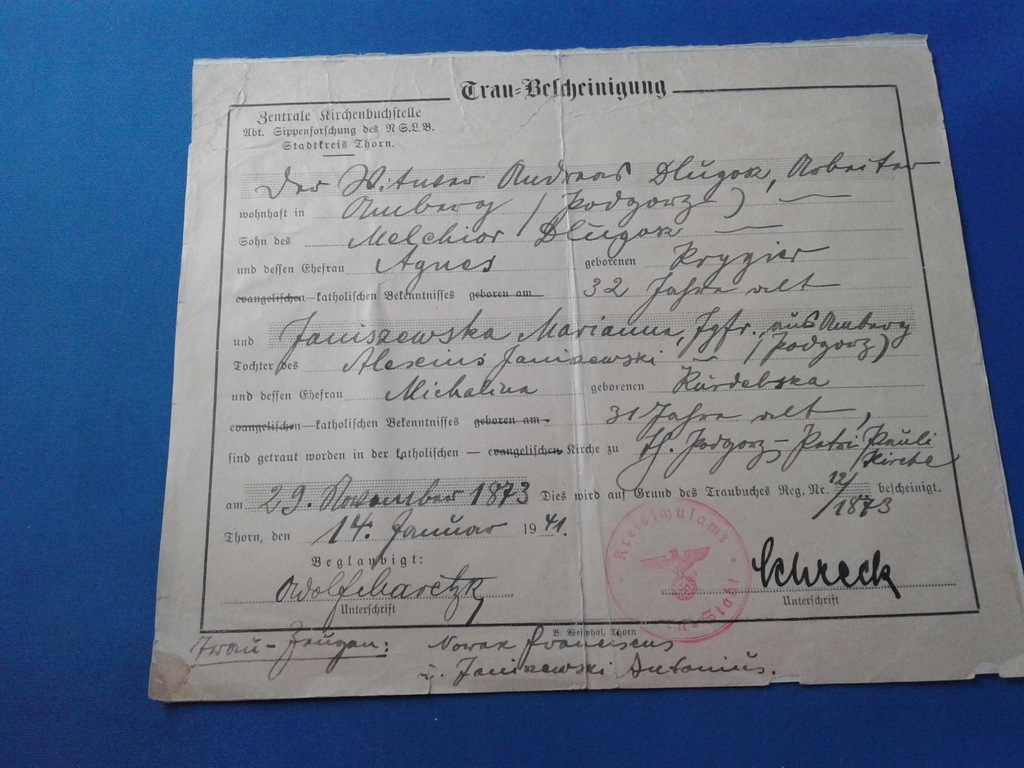 Trau-Bescheinigung
Zentrale Kirchenbuchstelle
Abt. Sippenforschung des N.S.L.B.
Stadtkreis Thorn.
Der Witwer Andreas Dlugosz, Arbeiter
wohnhaft in Amberg (Podgorz)
Sohn des Melchior Dlugosz
und dessen Ehefrau Agnes geborenen Krygier
evangelischen—katholischen Bekenntnisses geboren am 32 Jahre alt
und Janiszewska Marianna, Jgfr. aus Amberg
Tochter des Alexius Janiszewski (Podgorz)
und dessen Ehefrau Michalina geborenen
evangelischen—katholischen Bekenntnisses geboren am 31 Jahre alt,
sind getraut worden in der katholischen — evangelischen Kirche zu Podgorz-Petri Pauli Kirche
am 29. November 1873 Dies wird auf Grund des Traubuches Reg. Nr. 12/1873 bescheinigt.
Thorn, den 14. Januar 1941.
Beglaubigt:
Unterschrift
Kreisschulamt
Schreck
Unterschrift
B. Westphal, Thorn
Trau-Zeugen: Nowak Franciscus
u. Janiszewski Antonius.